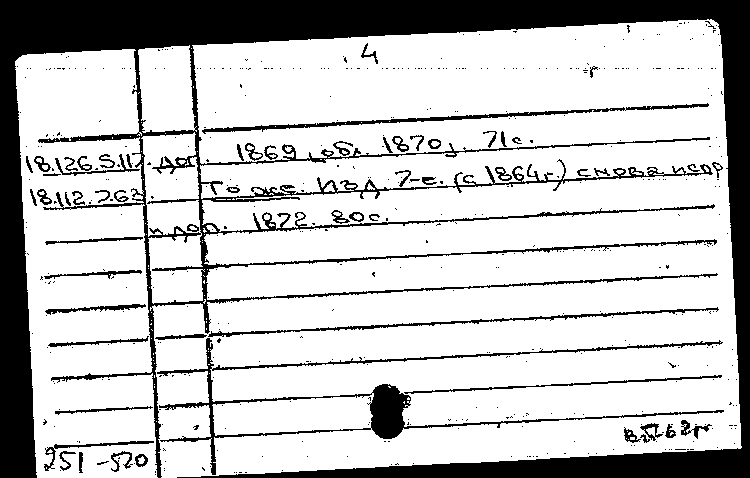 4
18.126.5.117. доп. 1869 [обл. 1870]. 71 с.
18.112.7.63. То же. Изд. 7-е. (с 1864 г.) снова испр
и доп. 1872. 80 с.
251-520